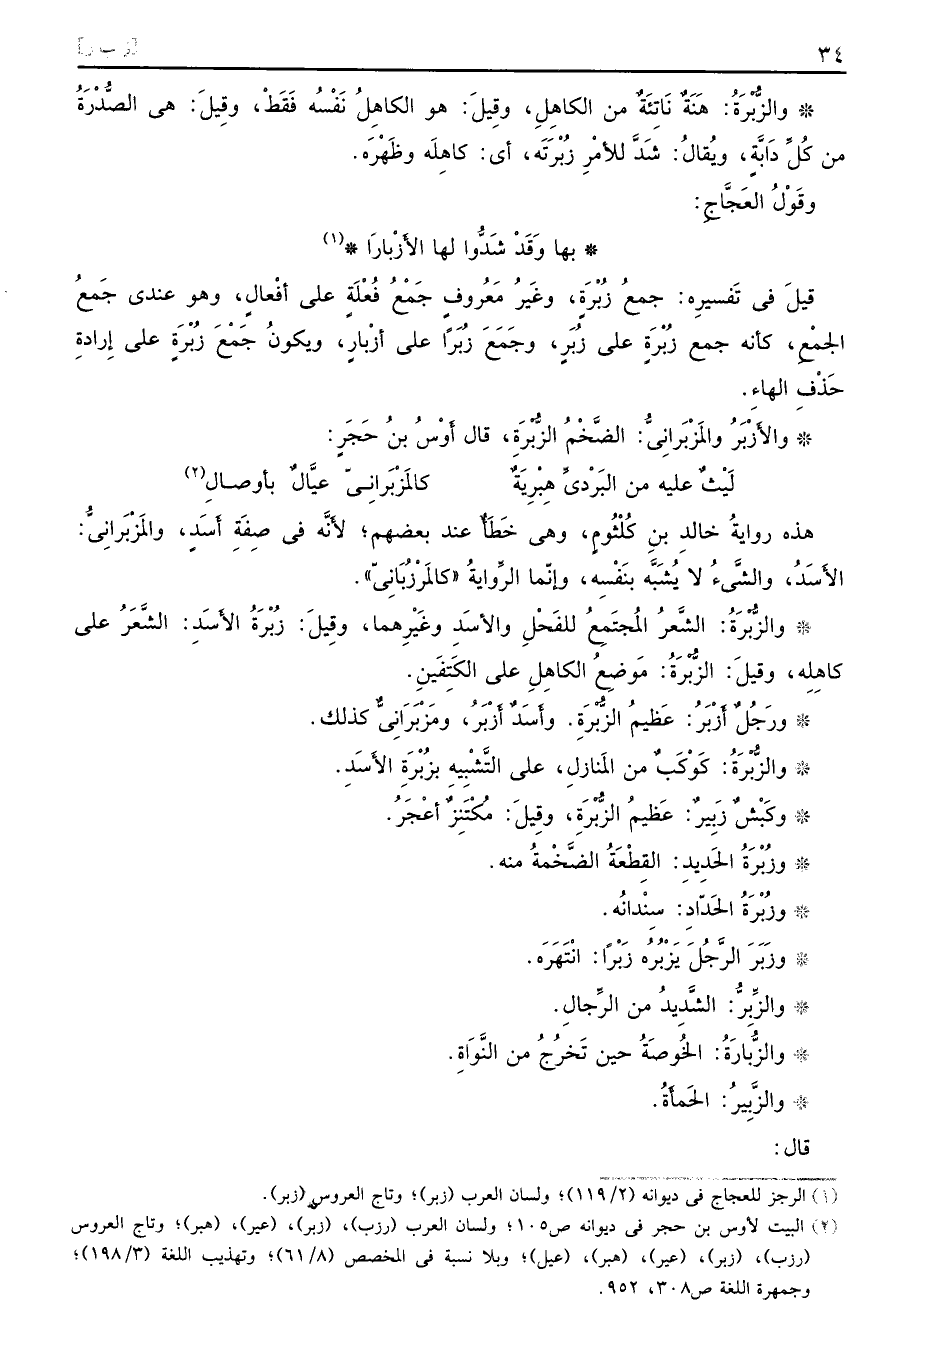 ٣٤ [ز ب ر]
* والزُّبْرَةُ: هَنَةٌ نَاتئَةٌ من الكاهلِ، وقيلَ: هو الكاهلُ نَفْسُه فَقَطْ، وقيلَ: هى الصُّدْرَةُ
من كُلِّ دَابَّةٍ، ويُقالُ: شَدَّ للأمْرِ زُبْرَتَه، أى: كاهلَه وظَهْرَه.
وقَوْلُ العَجَّاجِ:
* بها وَقَدْ شَدُّوا لها الأَزْبارَا *(١)
قيلَ فى تَفسيرِه: جمعُ زُبْرَةٍ، وغَيرُ مَعَروفٍ جَمْعُ فُعْلَةٍ على أفْعالٍ، وهو عندى جَمعُ
الجمْعِ، كأنه جمع زُبْرَةٍ على زُبَرٍ، وجَمَعَ زُبَرًا على أزْبارٍ، ويكونُ جَمْعَ زُبْرَةٍ على إرادةِ
حَذْفِ الهاءِ.
* والأزْبَرُ والمَزْبَرانِىُّ: الضَّخْمُ الزُّبْرَةِ، قال أوْسُ بنُ حَجَرٍ:
لَيْثٌ عليه من البَرْدىِّ هِبْرِيَةٌ كالمَزْبَرانىِّ عيَّالٌ بأوصالِ(٢)
هذه روايةُ خالدِ بنِ كُلْثُومٍ، وهى خَطَأٌ عند بعضهم؛ لأنَّه فى صِفَةِ أسَدٍ، والمَزْبَرانىُّ:
الأسَدُ، والشَّىءُ لا يُشَبَّه بنَفْسِه، وإنَّما الرِّوايةُ «كالمَرْزُبَانىِّ».
* والزُّبْرَةُ: الشَّعرُ المُجتَمِعُ للفَحْلِ والأسَدِ وغَيْرِهما، وقيلَ: زُبْرَةُ الأسَدِ: الشعَرُ على
كاهلِه، وقيلَ: الزُّبْرَةُ: مَوضِعُ الكاهلِ على الكَتفَينِ.
* ورَجُلٌ أزْبَرُ: عَظيمُ الزُّبْرَةِ. وأسَدٌ أزْبَرُ، ومَزْبَرَانىٌّ كذلك.
* والزُّبْرَةُ: كَوْكَبٌ من المَنازلِ، على التَّشْبيهِ بزُبْرَةِ الأسَدِ.
* وكَبْشٌ زَبيرٌ: عَظيمُ الزُّبْرَةِ، وقيلَ: مُكْتَنِزٌ أعْجَرُ.
* وزُبْرَةُ الحَديدِ: القطْعَةُ الضَّخْمةُ منه.
* وزُبْرَةُ الحَدّادِ: سنْدانُه.
* وزَبَرَ الرَّجُلَ يَزْبُرُه زَبْرًا: انْتَهَرَه.
* والزِّبِرُّ: الشَّديدُ من الرِّجالِ.
* والزُّبارَةُ: الخُوصَةُ حين تَخرُجُ من النَّوَاةِ.
* والزَّبِيرُ: الحَمأَةُ.
قال:
(١) الرجز للعجاج فى ديوانه (١١٩/٢)؛ ولسان العرب (زبر)؛ وتاج العروس (زبر).
(٢) البيت لأوس بن حجر فى ديوانه ص١٠٥؛ ولسان العرب (رزب)، (زبر)، (عير)، (هبر)؛ وتاج العروس
(رزب)، (زبر)، (عير)، (هبر)، (عيل)؛ وبلا نسبة فى المخصص (٦١/٨)؛ وتهذيب اللغة (١٩٨/٣)؛
وجمهرة اللغة ص٣٠٨، ٩٥٢.